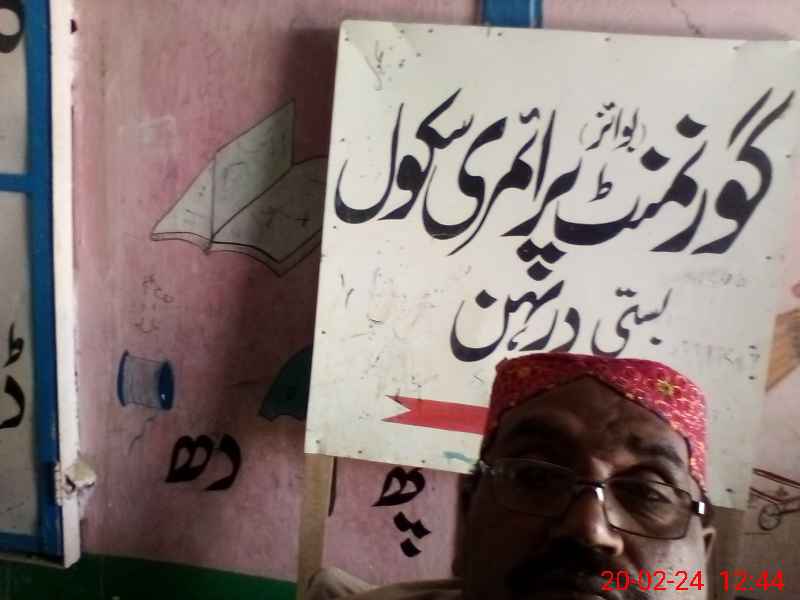 گورنمنٹ (بوائز) پرائمری سکول
بستی درہن
دھ
پھ
20-02-24 12:44